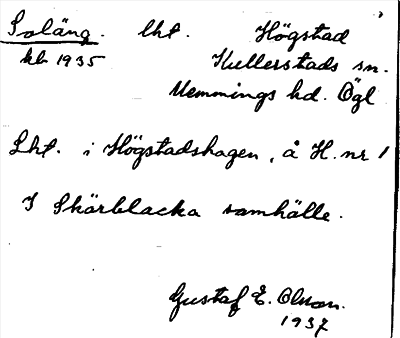 Soläng. lht. Högstad
kb 1935 Kullerstads sn.
Memmings hd. Ögl
Lht. i Högstadshagen, å H. nr 1
I Skärblacka samhälle.
Gustaf E. Olson.
1937